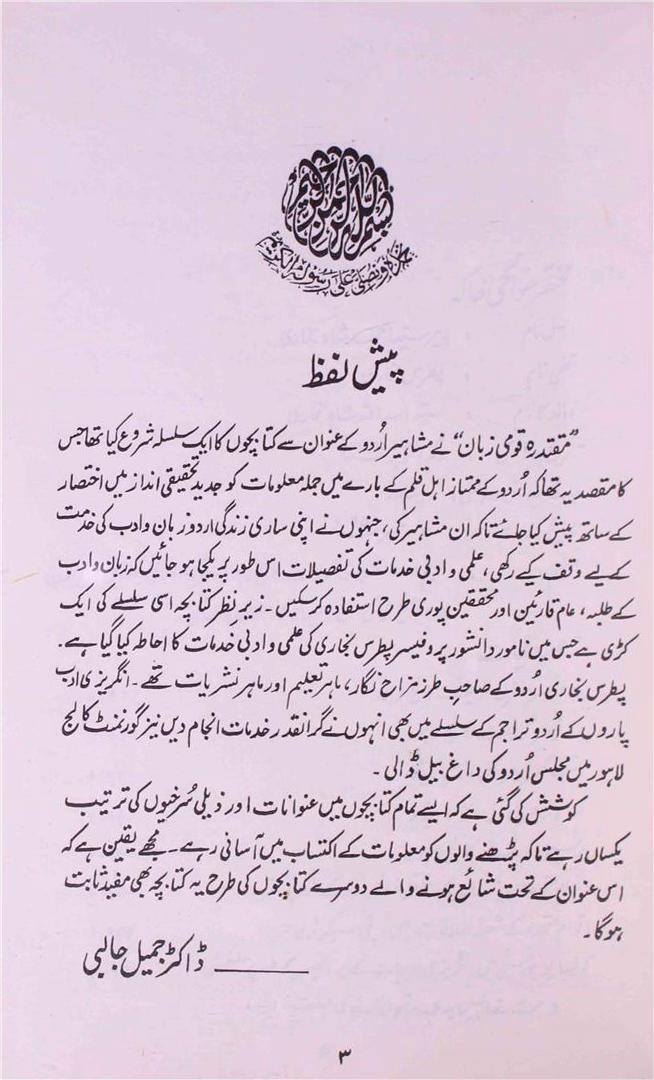 بسم اللہ الرحمن الرحیم
نحمدہ ونصلی علی رسولہ الکریم
پیش لفظ
”مقتدرہ قومی زبان“ نے مشاہیر اُردو کے عنوان سے کتابچوں کا ایک سلسلہ شروع کیا تھا جس
کا مقصد یہ تھا کہ اُردو کے ممتاز اہل قلم کے بارے میں جملہ معلومات کو جدید تحقیقی انداز میں اختصار
کے ساتھ پیش کیا جائے تاکہ ان مشاہیر کی، جنہوں نے اپنی ساری زندگی اردو زبان و ادب کی خدمت
کے لیے وقف کیے رکھی، علمی و ادبی خدمات کی تفصیلات اس طور پر یکجا ہو جائیں کہ زبان و ادب
کے طلبہ، عام قارئین اور محققین پوری طرح استفادہ کر سکیں۔ زیر نظر کتابچہ اسی سلسلے کی ایک
کڑی ہے جس میں نامور دانشور پروفیسر پطرس بخاری کی علمی و ادبی خدمات کا احاطہ کیا گیا ہے۔
پطرس بخاری اُردو کے صاحب طرز مزاح نگار، ماہر تعلیم اور ماہر نشریات تھے۔ انگریزی ادب
پاروں کے اُردو تراجم کے سلسلے میں بھی انہوں نے گرانقدر خدمات انجام دیں نیز گورنمنٹ کالج
لاہور میں مجلس اُردو کی داغ بیل ڈالی۔
کوشش کی گئی ہے کہ ایسے تمام کتابچوں میں عنوانات اور ذیلی سُرخیوں کی ترتیب
یکساں رہے تاکہ پڑھنے والوں کو معلومات کے اکتساب میں آسانی رہے۔ مجھے یقین ہے کہ
اس عنوان کے تحت شائع ہونے والے دوسرے کتابچوں کی طرح یہ کتابچہ بھی مفید ثابت
ہو گا۔
ــــــــــ ڈاکٹر جمیل جالبی
۳